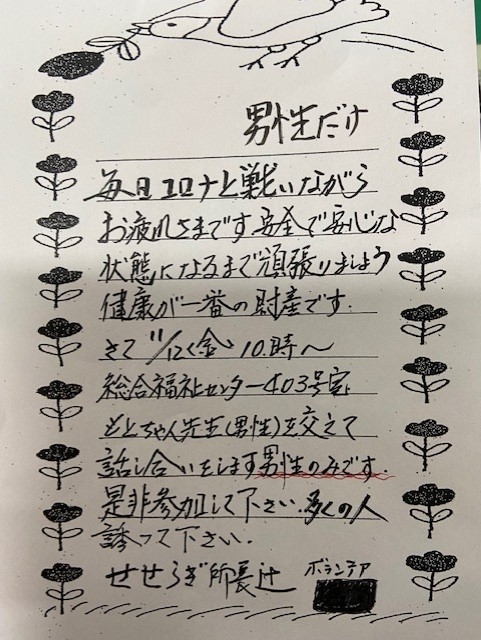 男性だけ
毎日コロナと戦いながら
お疲れさまです安全で安心な
状態になるまで頑張りましょう
健康が一番の財産です.
さて 11/12(金) 10.時〜
総合福祉センター403号室
もとちゃん先生(男性)を交えて
話し合いをします男性のみです.
是非参加して下さい.多くの人
誘って下さい.
せせらぎ所長辻 ボランテア